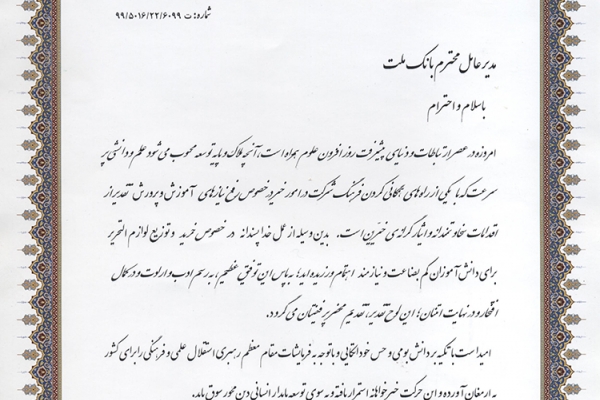 شماره: ت ۹۹/۵۰۱۶/۲۲/۶۰۹۹
مدیر عامل محترم بانک ملت
باسلام و احترام
امروزه در عصر ارتباطات و دنیای پیشرفت روز افزون علوم همراه است، آنچه ملاک و پایه توسعه محسوب می شود علم و دانشی پر
سرعت که با یکی از راه های همگانی کردن فرهنگ شرکت در امور خیر در خصوص رفع نیازهای آموزش و پرورش تقدیر از
اقدامات سخاوتمندانه و ایثارگرانه ی خیرین است. بدین وسیله از عمل خداپسندانه در خصوص خرید و توزیع لوازم التحریر
برای دانش آموزان کم بضاعت و نیازمند اهتمام ورزیده اید؛ به پاس این توفیق عظیم، به رسم ادب و ارادت و در کمال
افتخار و در نهایت امتنان؛ این لوح تقدیر، تقدیم محضر پر فیضتان می گردد.
امید است با تکیه بر دانش بومی و حس خوداتکایی و با توجه به فرمایشات مقام معظم رهبری استقلال علمی و فرهنگی را برای کشور
به ارمغان آورده و این حرکت خیرخواهانه استمرار یافته و به سوی توسعه پایدار انسانی دین محور سوق یابد.